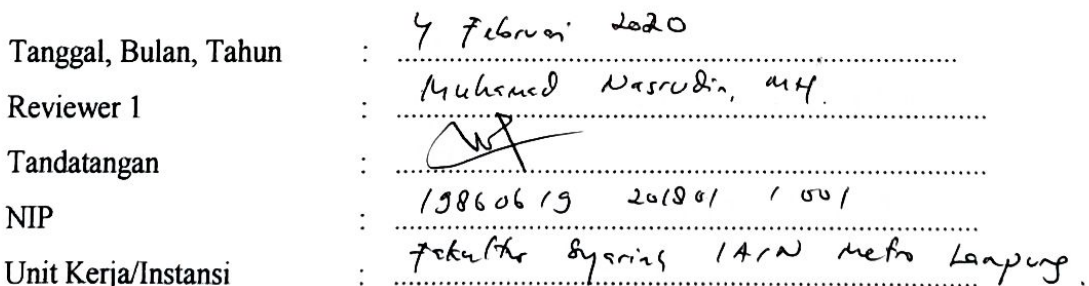 Tanggal, Bulan, Tahun : 4 Februari 2020
Reviewer 1 : Muhamad Nasrudin, MH.
Tandatangan :
NIP : 19860619 201801 1 001
Unit Kerja/Instansi : Fakultas Syariah IAIN Metro Lampung.